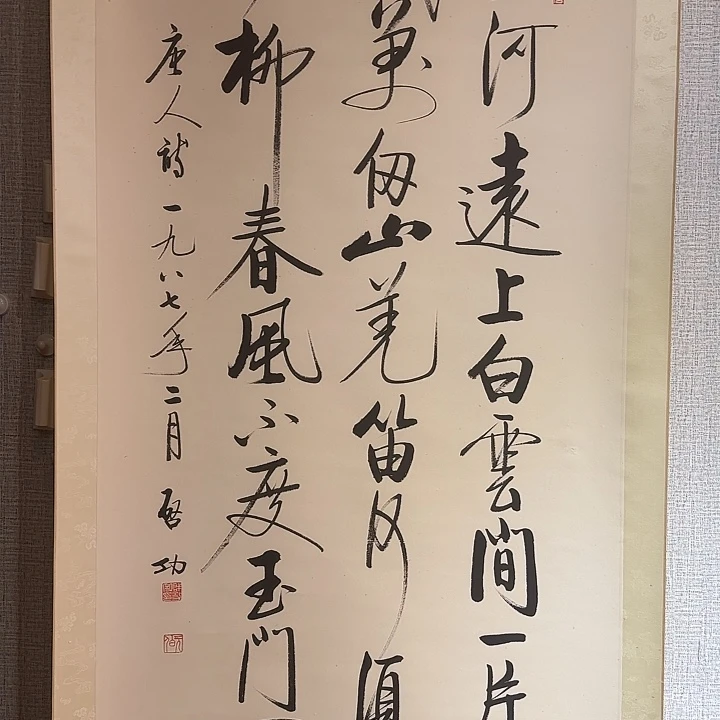 河遠上白雲間一片
萬仞山羌笛何須
柳春風不度玉門
唐人詩一九八七年二月啓功